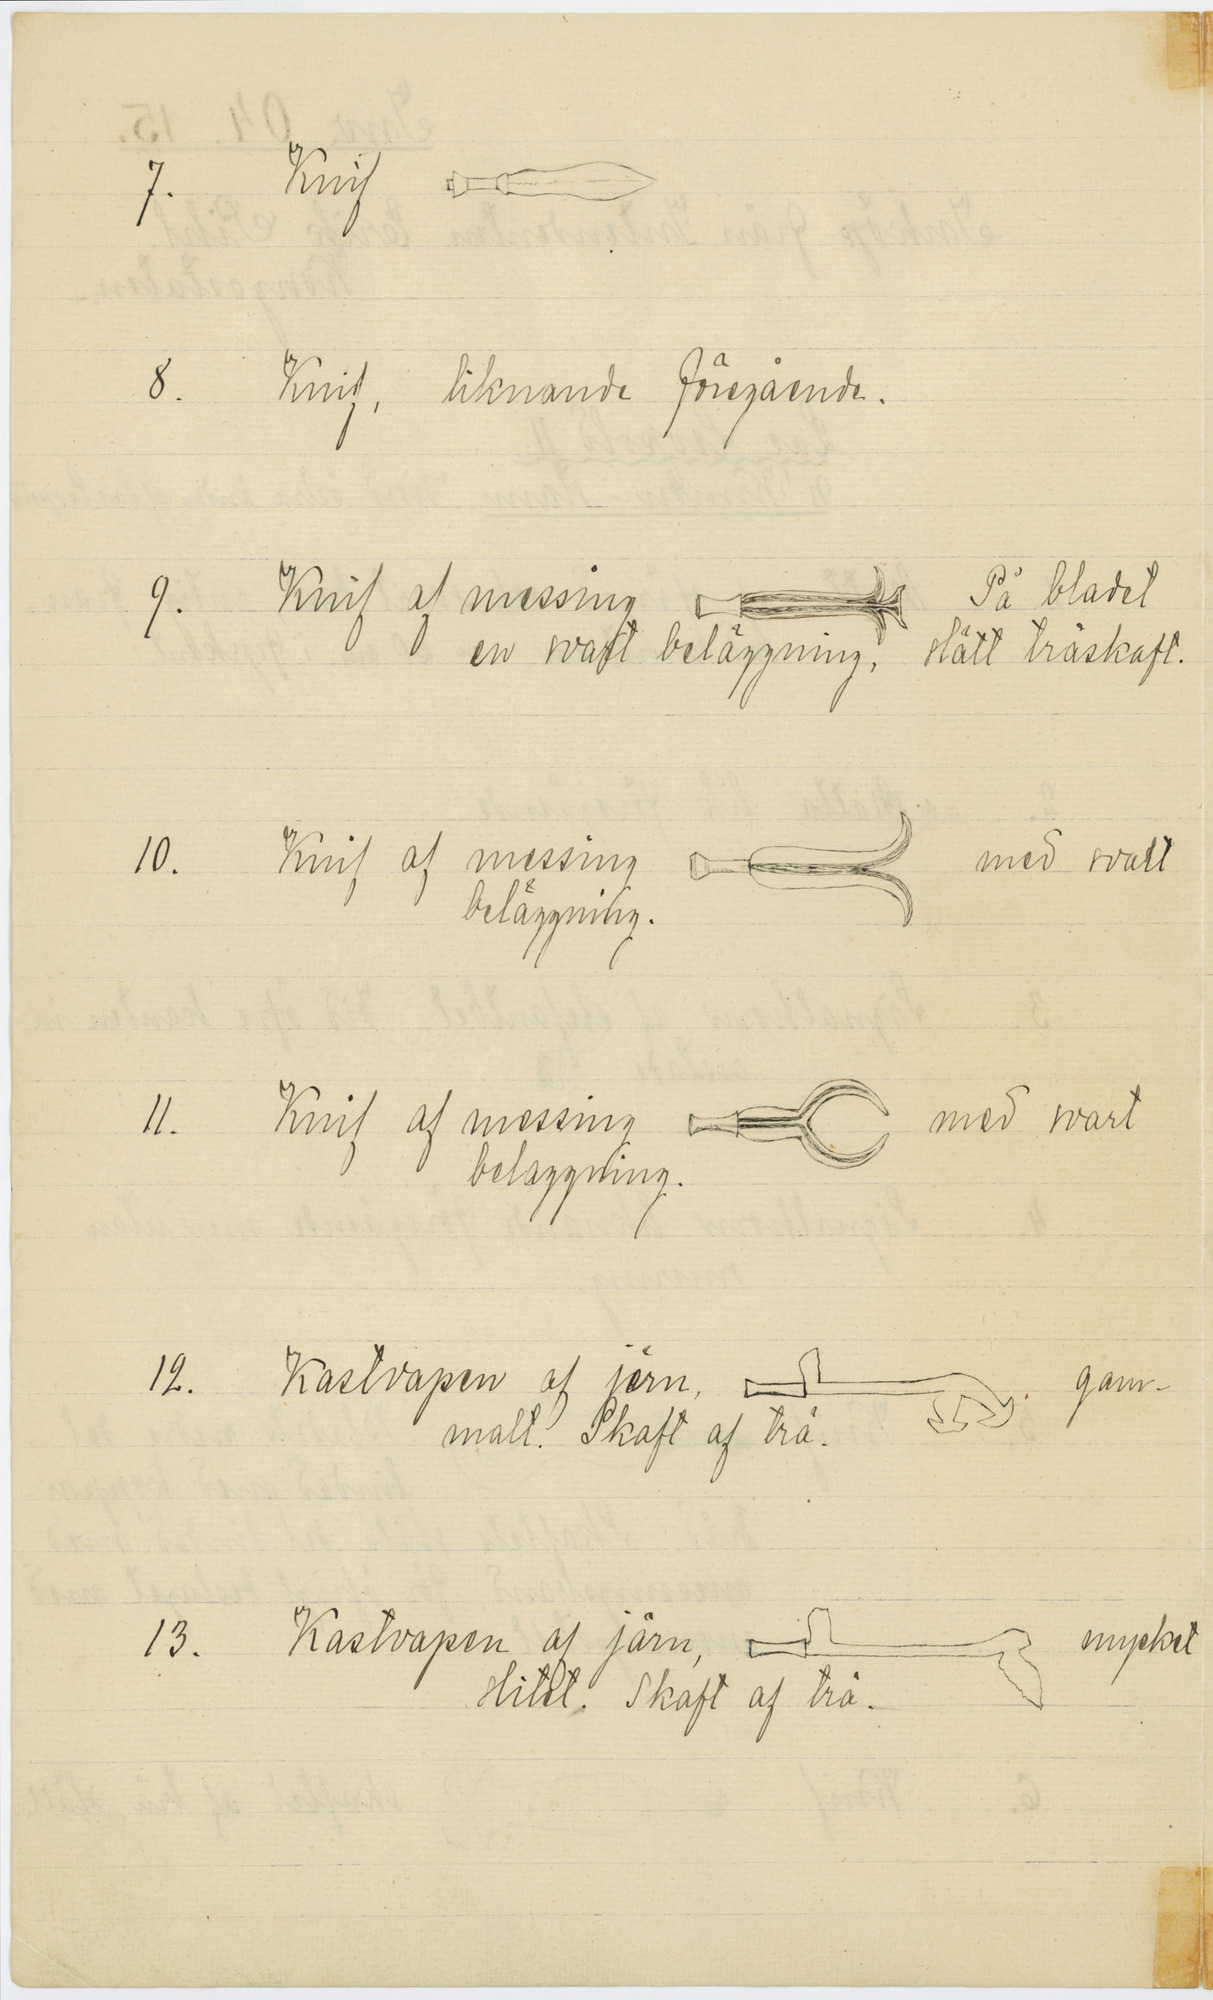 7. Knif
8. Knif, liknande föregående.
9. Knif af messing På bladet
en svart beläggning, slätt träskaft.
10. Knif af messing med svart
beläggning.
11. Knif af messing med svart
beläggning.
12. Kastvapen af järn, gam-
malt. Skaft af trä.
13. Kastvapen af järn, mycket
slitet. Skaft af trä.